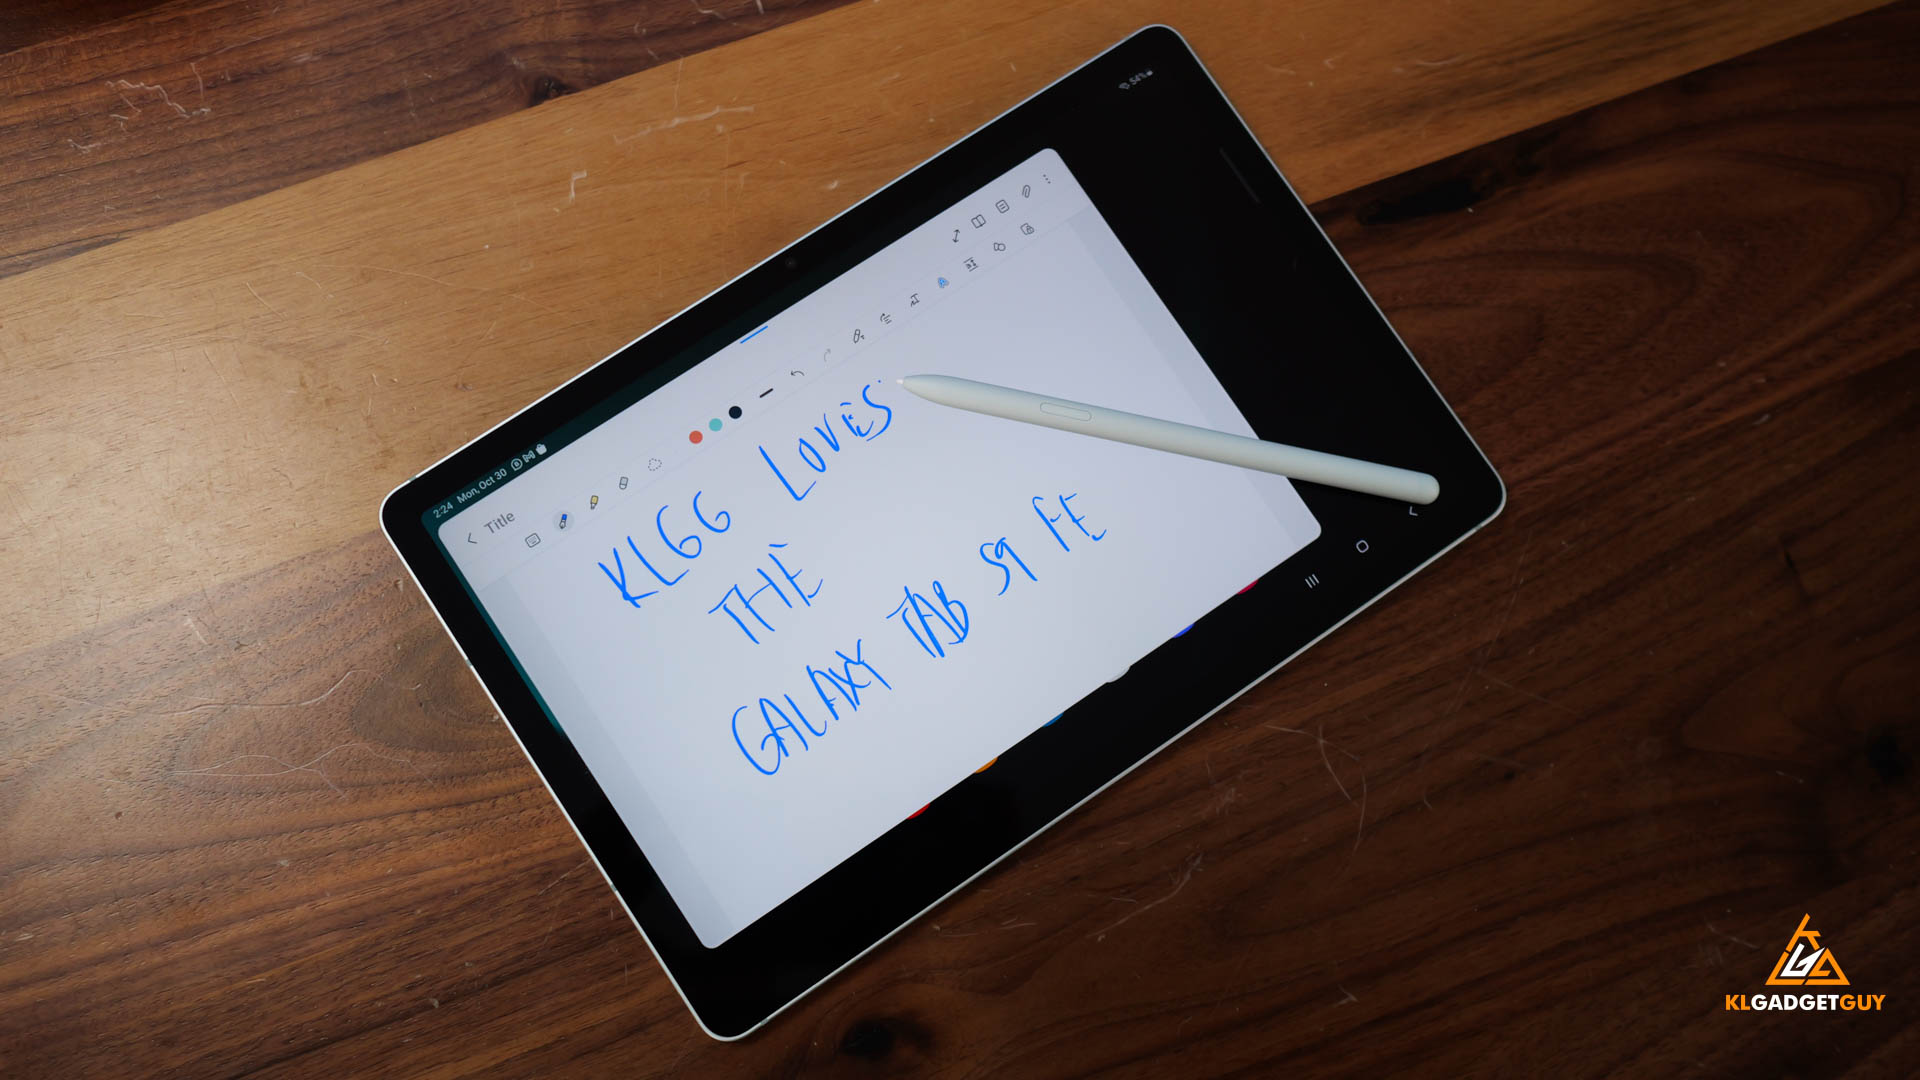 54%
2:24 Mon, Oct 30
Title
KLGG LOVES
THE
GALAXY TAB S9 FE
KLGADGETGUY